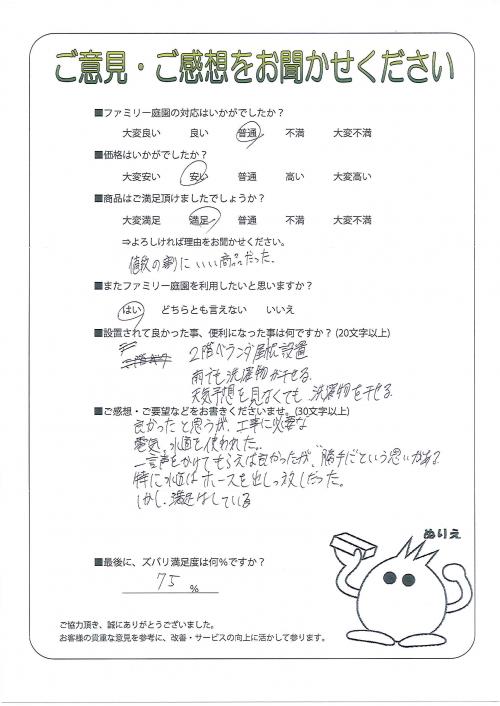 ご意見・ご感想をお聞かせください
■ファミリー庭園の対応はいかがでしたか？
大変良い 良い 普通 不満 大変不満
■価格はいかがでしたか？
大変安い 安い 普通 高い 大変高い
■商品はご満足頂けましたでしょうか？
大変満足 満足 普通 不満 大変不満
⇒よろしければ理由をお聞かせください。
値段の割にいい商品だった。
■またファミリー庭園を利用したいと思いますか？
はい どちらとも言えない いいえ
■設置されて良かった事、便利になった事は何ですか？(20文字以上)
2階ベランダ屋根設置
雨でも洗濯物が干せる。
天気予想を見なくても洗濯物を干せる。
■ご感想・ご要望などをお書きくださいませ。(30文字以上)
良かったと思うが、工事に必要な
電気、水道を使われた。
一言声をかけてもらえば良かったが、勝手にという思いがある
特に水道はホースを出しっ放しだった。
しかし、満足はしている
ぬりえ
■最後に、ズバリ満足度は何%ですか？
75 %
ご協力頂き、誠にありがとうございました。
お客様の貴重な意見を参考に、改善・サービスの向上に活かして参ります。